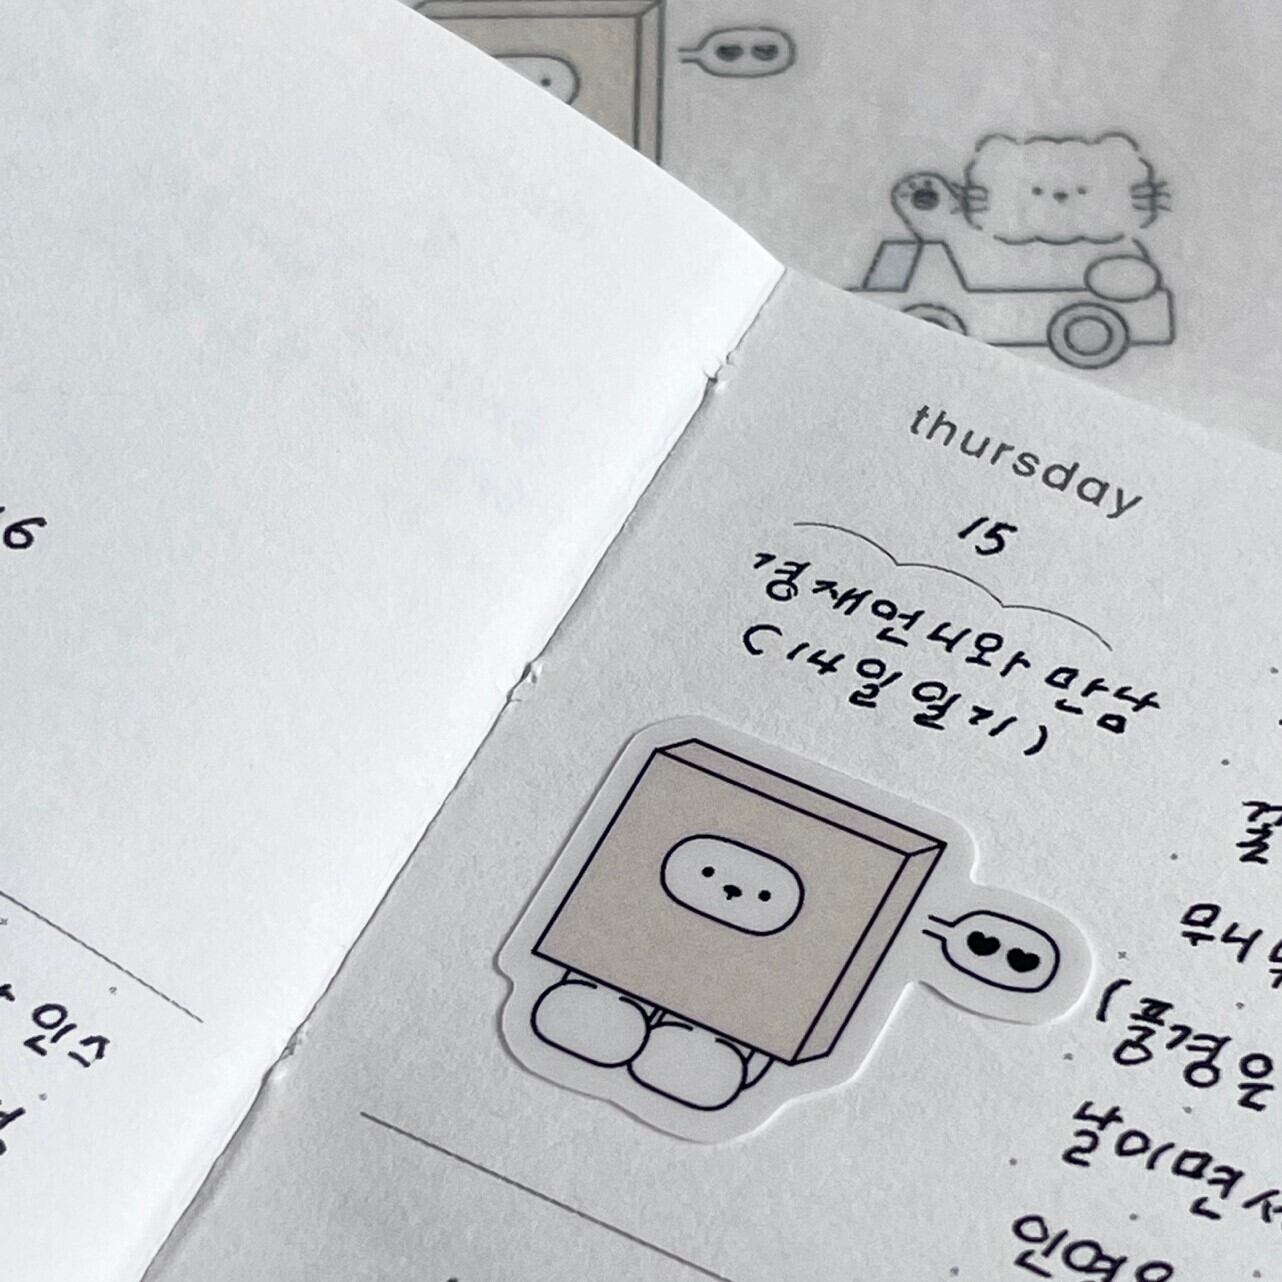 16
인스
thursday
15
경재언니와 만남
(14일 일기)
무니
(풍경은
날이면
인연은